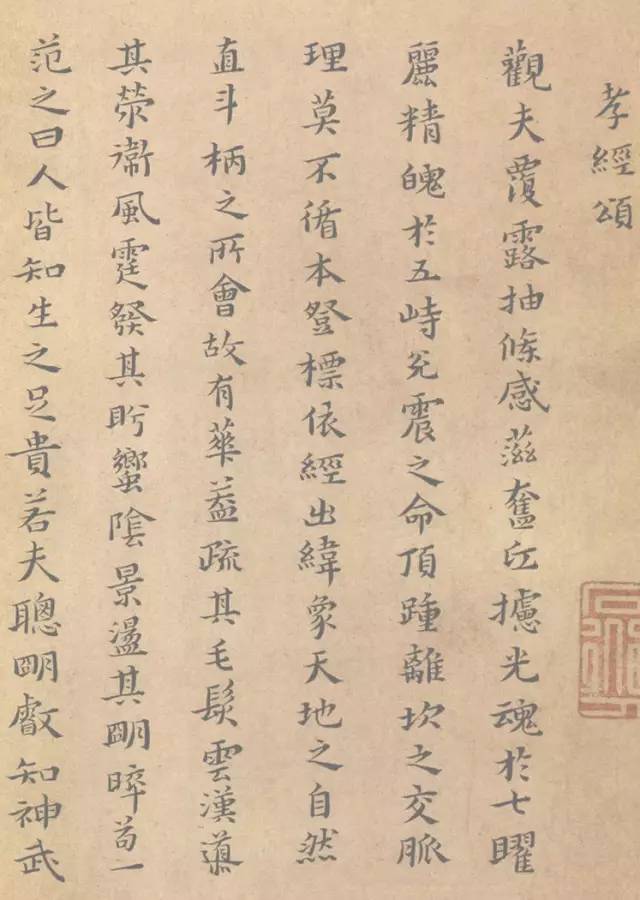 孝經頌
觀夫覆露抽條感蕬奮丘攄光魂於七曜
麗精魄於五峙兊震之命頂踵離坎之交脈
理莫不循本登標依經出緯象天地之自然
直斗柄之所會故有華蓋疏其毛髮雲漢導
其滎衞風霆發其肸蠁陰景盪其朙晬苟一
范之曰人皆知生之足貴若夫聰朙叡知神武